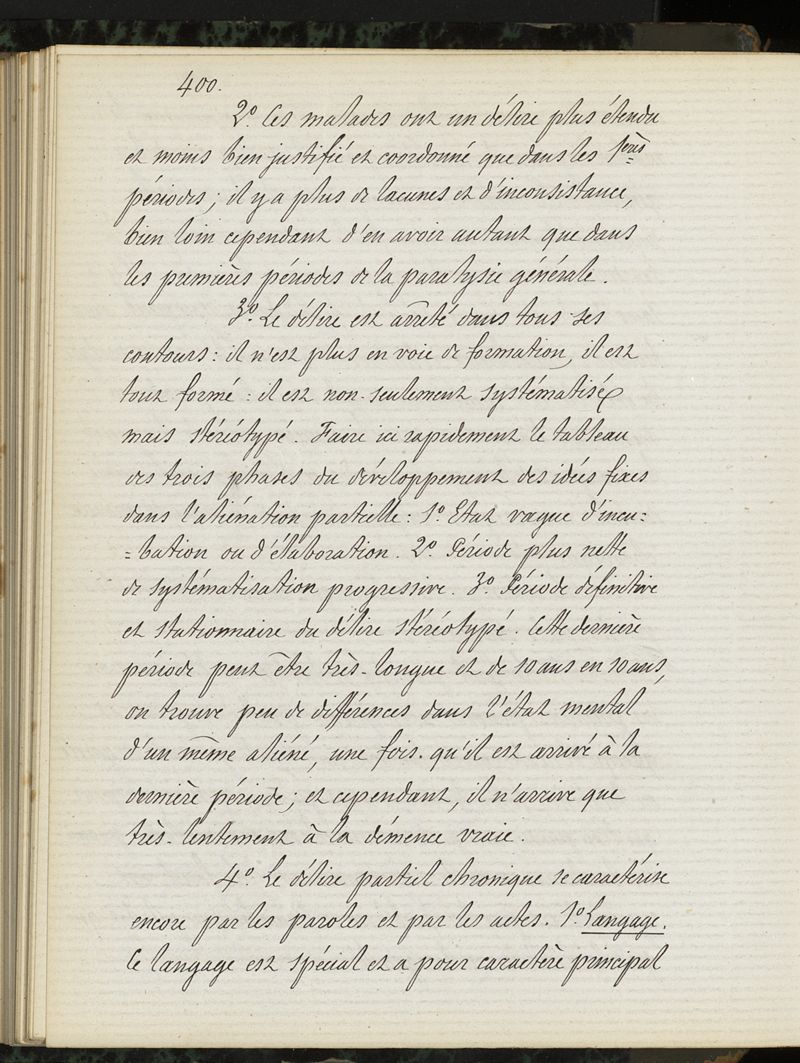 400.
2º. Ces malades ont un délire plus étendu
et moins bien justifié et coordonné que dans les 1ères
périodes; il y a plus de lacunes et d'inconsistance,
bien loin cependant d'en avoir autant que dans
les premières périodes de la paralysie générale.
3º. Le délire est arrêté dans tous ses
contours: il n'est plus en voie de formation, il est
tout formé: il est non-seulement systématisé
mais stéréotypé. Faire ici rapidement le tableau
des trois phases du développement des idées fixes
dans l'aliénation partielle: 1º. Etat vague d'incu:
=bation ou d'élaboration. 2º. Période plus nette
de systématisation progressive. 3º. Période définitive
et stationnaire du délire stéréotypé. Cette dernière
période peut être très-longue et de 10 ans en 10 ans,
on trouve peu de différences dans l'état mental
d'un même aliéné, une fois qu'il est arrivé à la
dernière période; et cependant, il n'arrive que
très-lentement à la démence vraie.
4º. Le délire partiel chronique se caractérise
encore par les paroles et par les actes. 1º. Langage.
Ce langage est spécial et a pour caractère principal